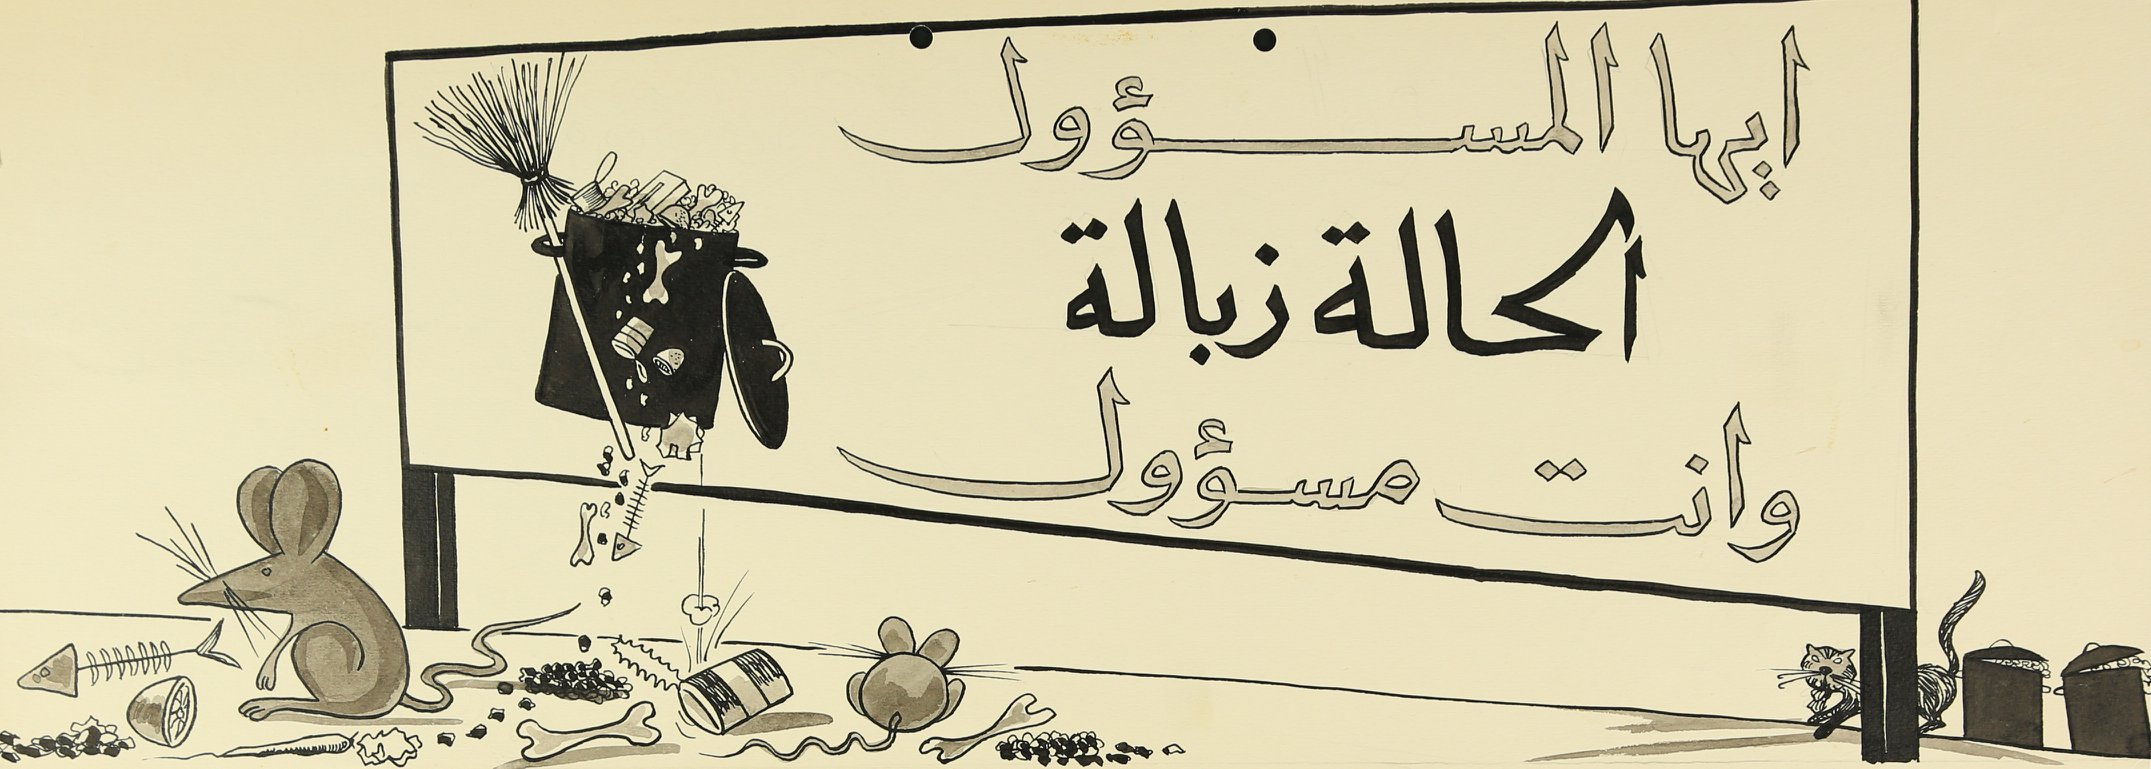 ايها المسؤول
الحالة زبالة
وانت مسؤول